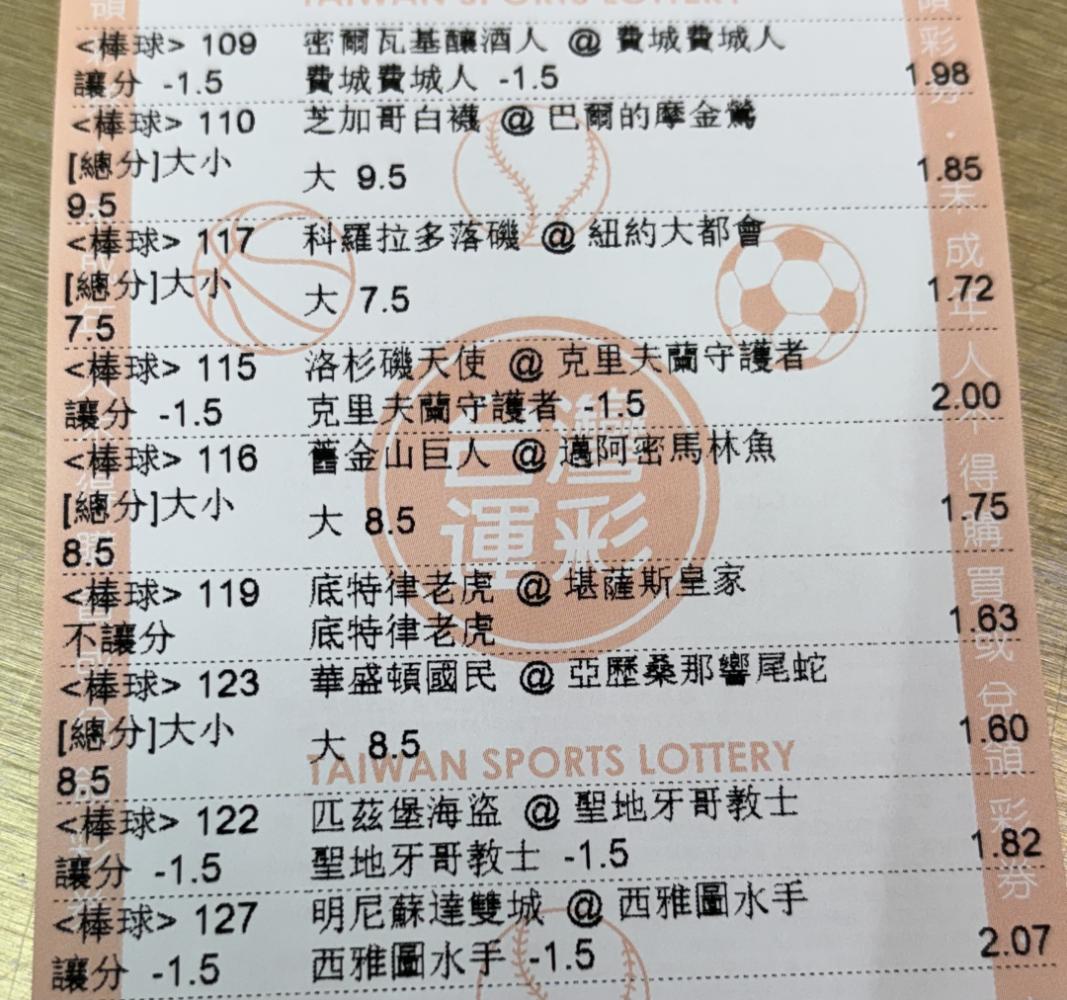 TAIWAN SPORTS LOTTERY
<棒球> 109 密爾瓦基釀酒人 @ 費城費城人
讓分 -1.5 費城費城人 -1.5 1.98
<棒球> 110 芝加哥白襪 @ 巴爾的摩金鶯
[總分]大小 大 9.5 1.85
9.5
<棒球> 117 科羅拉多落磯 @ 紐約大都會
[總分]大小 大 7.5 1.72
7.5
<棒球> 115 洛杉磯天使 @ 克里夫蘭守護者
讓分 -1.5 克里夫蘭守護者 -1.5 2.00
<棒球> 116 舊金山巨人 @ 邁阿密馬林魚
[總分]大小 大 8.5 1.75
8.5
<棒球> 119 底特律老虎 @ 堪薩斯皇家
不讓分 底特律老虎 1.63
<棒球> 123 華盛頓國民 @ 亞歷桑那響尾蛇
[總分]大小 大 8.5 1.60
8.5
TAIWAN SPORTS LOTTERY
<棒球> 122 匹茲堡海盜 @ 聖地牙哥教士
讓分 -1.5 聖地牙哥教士 -1.5 1.82
<棒球> 127 明尼蘇達雙城 @ 西雅圖水手
讓分 -1.5 西雅圖水手 -1.5 2.07
台灣
運彩
領彩券·未成年人不得購買或兌領彩券